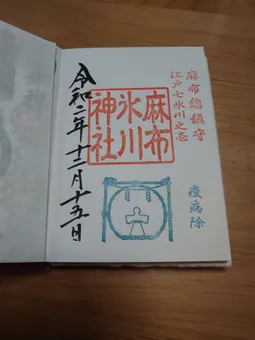 麻布總鎮守
江戸七氷川之壱
疫病除
麻布
氷川
神社
令和二年十二月十五日